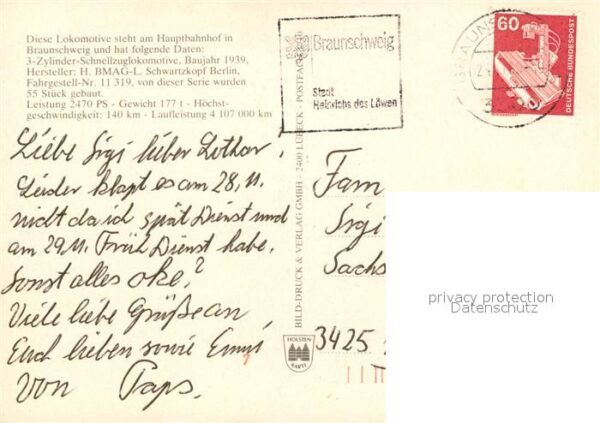 Diese Lokomotive steht am Hauptbahnhof in
Braunschweig und hat folgende Daten:
3-Zylinder-Schnellzuglokomotive, Baujahr 1939,
Hersteller: H. BMAG-L. Schwartzkopf Berlin,
Fahrgestell-Nr. 11 319, von dieser Serie wurden
55 Stück gebaut.
Leistung 2470 PS - Gewicht 177 t - Höchst-
geschwindigkeit: 140 km - Laufleistung 4 107 000 km
Liebe Sigi lieber Lothar,
Leider klapt es am 28.11.
nicht da ich spät Dienst und
am 29.11. Früh Dienst habe.
Sonst alles oke?
Viele liebe Grüße an
Euch lieben sowie Emmi
von Paps.
BILD-DRUCK & VERLAG GMBH - 2400 LÜBECK - POSTFACH
HOLSTEN
KARTE
Braunschweig
Stadt
Heinrichs des Löwen
60
DEUTSCHE BUNDESPOST
Fam
Sigi
Sachs
3425
privacy protection
Datenschutz